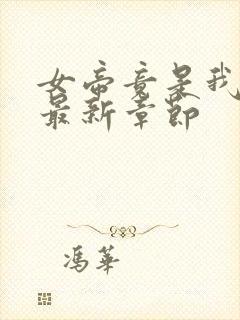 女帝竟是我
最新章節
馮華